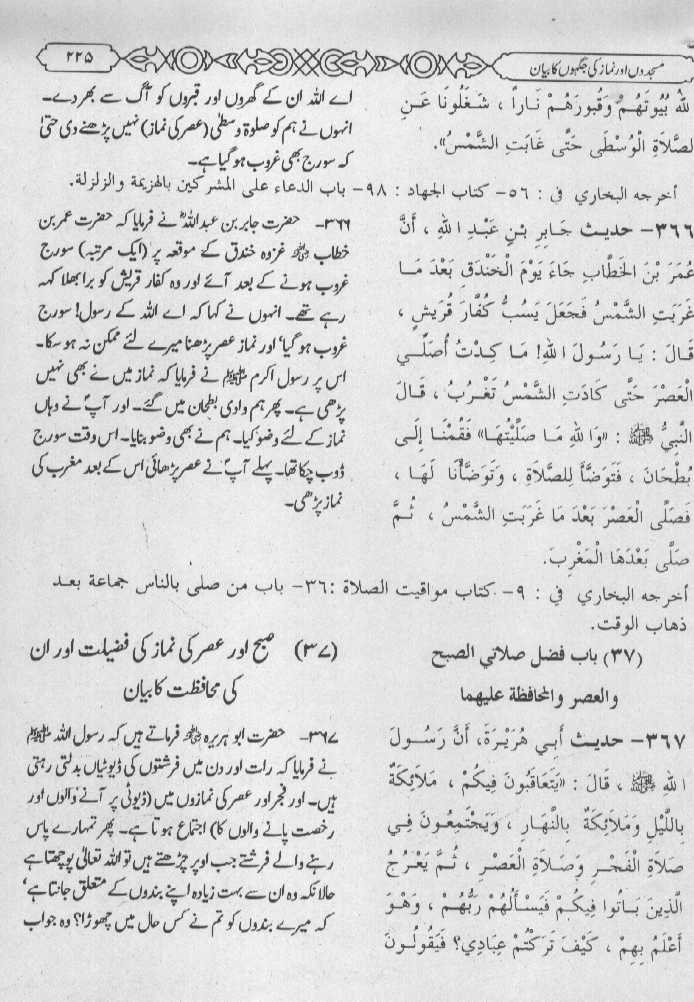 مسجدوں اور نماز کی جگہوں کا بیان
۲۲۵
للهُ بُيُوتَهُمْ وَقُبورَهُمْ نَاراً ، شَغَلُونَا عَنِ
لصَّلاَةِ الْوُسْطَى حَتَّى غَابَتِ الشَّمْسُ».
اے اللہ ان کے گھروں اور قبروں کو آگ سے بھر دے۔
انہوں نے ہم کو صلوٰۃ وسطیٰ (عصر کی نماز) نہیں پڑھنے دی حتیٰ
کہ سورج بھی غروب ہو گیا ہے۔
أخرجه البخاري في : ٥٦- كتاب الجهاد : ٩٨- باب الدعاء على المشركين بالهزيمة والزلزلة.
٣٦٦- حديث جَابِرِ بْنِ عَبْدِ اللهِ ، أَنَّ
عُمَرَ بْنَ الخَطَّابِ جَاءَ يَوْمَ الْخَنْدَقِ بَعْدَ مَا
غَرَبَتِ الشَّمْسُ فَجَعَلَ يَسُبُّ كُفَّارَ قُرَيْشٍ ،
قَالَ : يَا رَسُولَ اللهِ! مَا كِدْتُ أُصَلِّي
الْعَصْرَ حَتَّى كَادَتِ الشَّمْسُ تَغْرُبُ ، قَالَ
النَّبِيُّ ﷺ : «وَاللهِ مَا صَلَّيْتُهَا» فَقُمْنَا إِلَى
بُطْحَانَ ، فَتَوَضَّأَ لِلصَّلاَةِ ، وَتَوَضَّأْنَا لَهَا ،
فَصَلَّى الْعَصْرَ بَعْدَ مَا غَرَبَتِ الشَّمْسُ ، ثُمَّ
صَلَّى بَعْدَهَا الْمَغْرِبَ.
۳۶۶- حضرت جابر بن عبداللہؓ نے فرمایا کہ حضرت عمر بن
خطاب ؓ غزوہ خندق کے موقعہ پر (ایک مرتبہ) سورج
غروب ہونے کے بعد آئے اور وہ کفار قریش کو برا بھلا کہہ
رہے تھے۔ انہوں نے کہا کہ اے اللہ کے رسول! سورج
غروب ہو گیا‘ اور نماز عصر پڑھنا میرے لئے ممکن نہ ہو سکا۔
اس پر رسول اکرم ﷺ نے فرمایا کہ نماز میں نے بھی نہیں
پڑھی ہے۔ پھر ہم وادی بطحان میں گئے۔ اور آپؐ نے وہاں
نماز کے لئے وضو کیا۔ ہم نے بھی وضو بنایا۔ اس وقت سورج
ڈوب چکا تھا۔ پہلے آپؐ نے عصر پڑھائی اس کے بعد مغرب کی
نماز پڑھی۔
أخرجه البخاري في : ٩- كتاب مواقيت الصلاة :٣٦- باب من صلى بالناس جماعة بعد
ذهاب الوقت.
(٣٧) باب فضل صلاتي الصبح
والعصر والمحافظة عليهما
(۳۷) صبح اور عصر کی نماز کی فضیلت اور ان
کی محافظت کا بیان
٣٦٧- حديث أَبِي هُرَيْرَةَ، أَنَّ رَسُولَ
اللهِ ﷺ ، قَالَ : «يَتَعَاقَبُونَ فِيكُمْ ، مَلاَئِكَةٌ
بِاللَّيْلِ وَمَلاَئِكَةٌ بِالنَّهَارِ ، وَيَجْتَمِعُونَ فِي
صَلاَةِ الْفَجْرِ وَصَلاَةِ الْعَصْرِ ، ثُمَّ يَعْرُجُ
الَّذِينَ بَاتُوا فِيكُمْ فَيَسْأَلُهُمْ رَبُّهُمْ ، وَهْوَ
أَعْلَمُ بِهِمْ ، كَيْفَ تَرَكْتُمْ عِبَادِي؟ فَيَقُولُونَ
۳۶۷- حضرت ابو ہریرہ ؓ فرماتے ہیں کہ رسول اللہ ﷺ
نے فرمایا کہ رات اور دن میں فرشتوں کی ڈیوٹیاں بدلتی رہتی
ہیں۔ اور فجر اور عصر کی نمازوں میں (ڈیوٹی پر آنے والوں اور
رخصت پانے والوں کا) اجتماع ہوتا ہے۔ پھر تمہارے پاس
رہنے والے فرشتے جب اوپر چڑھتے ہیں تو اللہ تعالیٰ پوچھتا ہے
حالانکہ وہ ان سے بہت زیادہ اپنے بندوں کے متعلق جانتا ہے‘
کہ میرے بندوں کو تم نے کس حال میں چھوڑا؟ وہ جواب